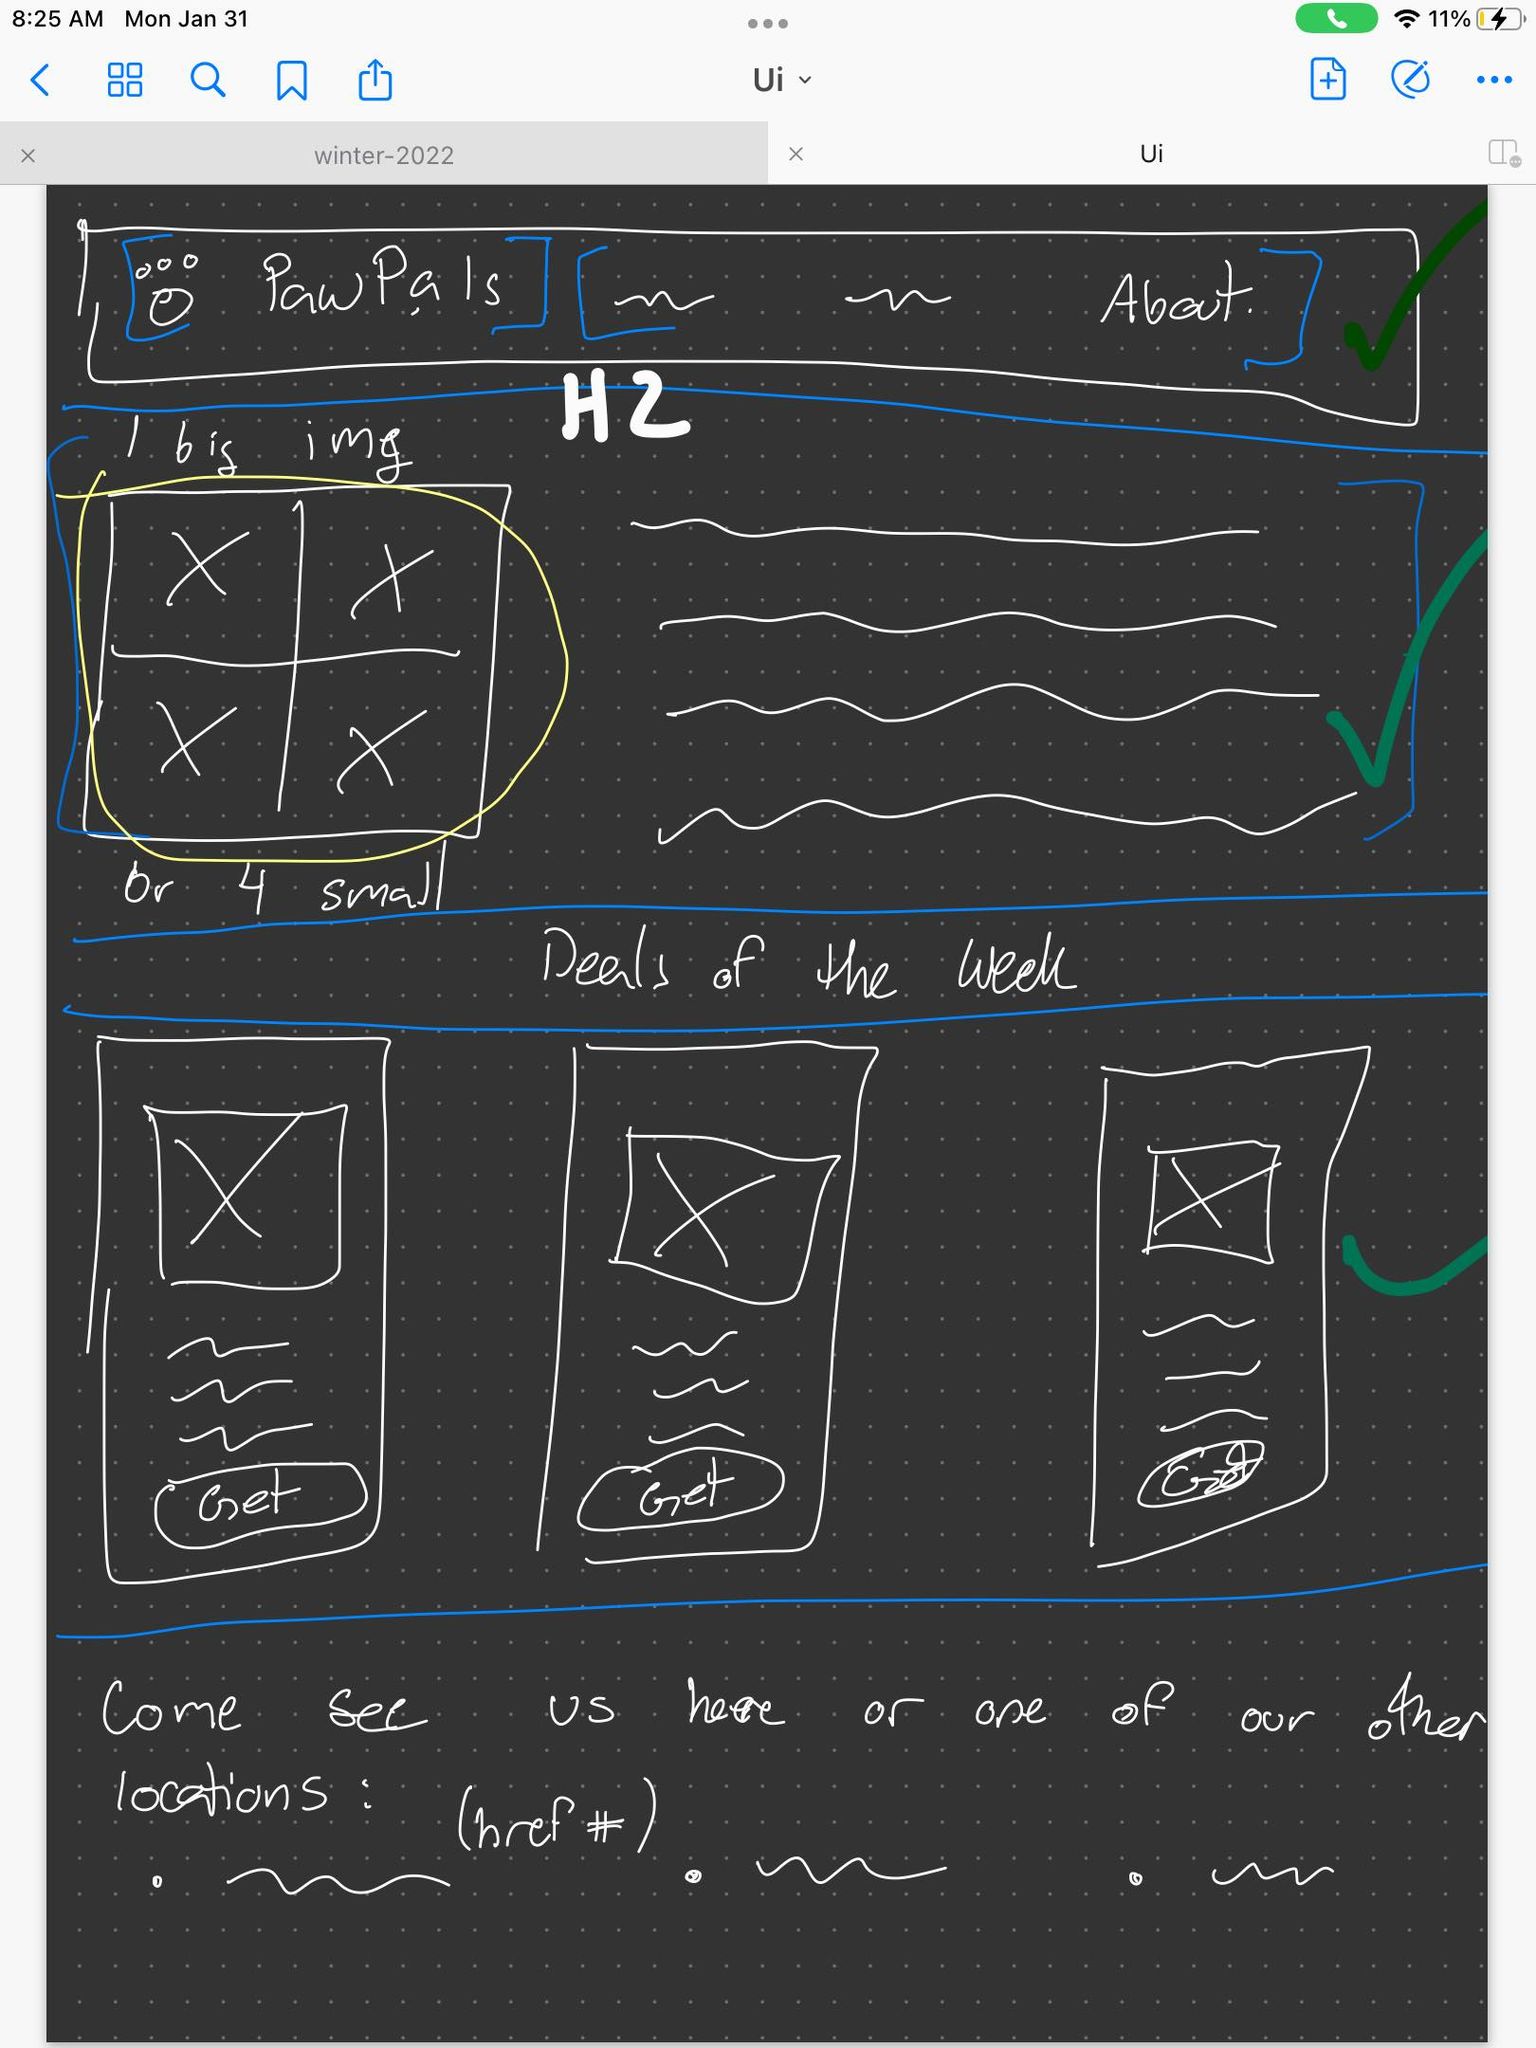 8:25 AM Mon Jan 31
11%
Ui
winter-2022
Ui
PawPals
About.
H2
1 big img
or 4 small
Deals of the week
Get
Get
Get
Come see us here or one of our other
locations:
(href #)